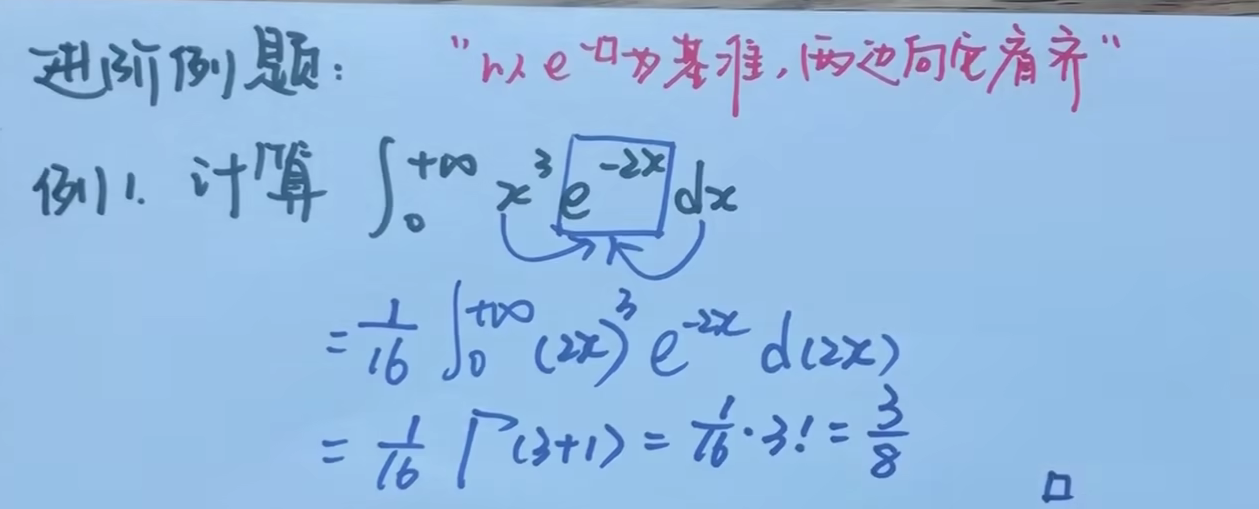 进阶例题： “以 e^{-□} 为基准，两边向它看齐”
例1. 计算 ∫₀^{+∞} x³ e^{-2x} dx
= 1/16 ∫₀^{+∞} (2x)³ e^{-2x} d(2x)
= 1/16 Γ(3+1) = 1/16 · 3! = 3/8 □